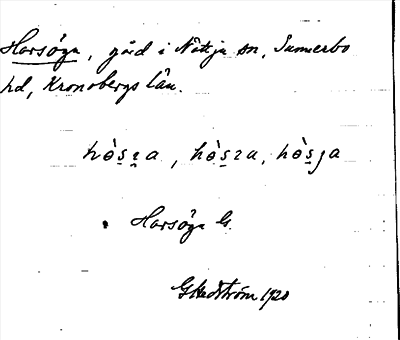 Horsöga, gård i Nöttja sn, Sunnerbo
hd, Kronobergs län.
hòs̱ɿa, hòs̱ɿa, hòs̱ja
Horsöga G.
G Hedström 1920